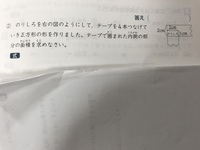 答え
② のりしろを右の図のようにして、テープを4本つなげて
いき正方形の形を作りました。テープで囲まれた内側の部
分の面積を求めなさい。
式
2cm